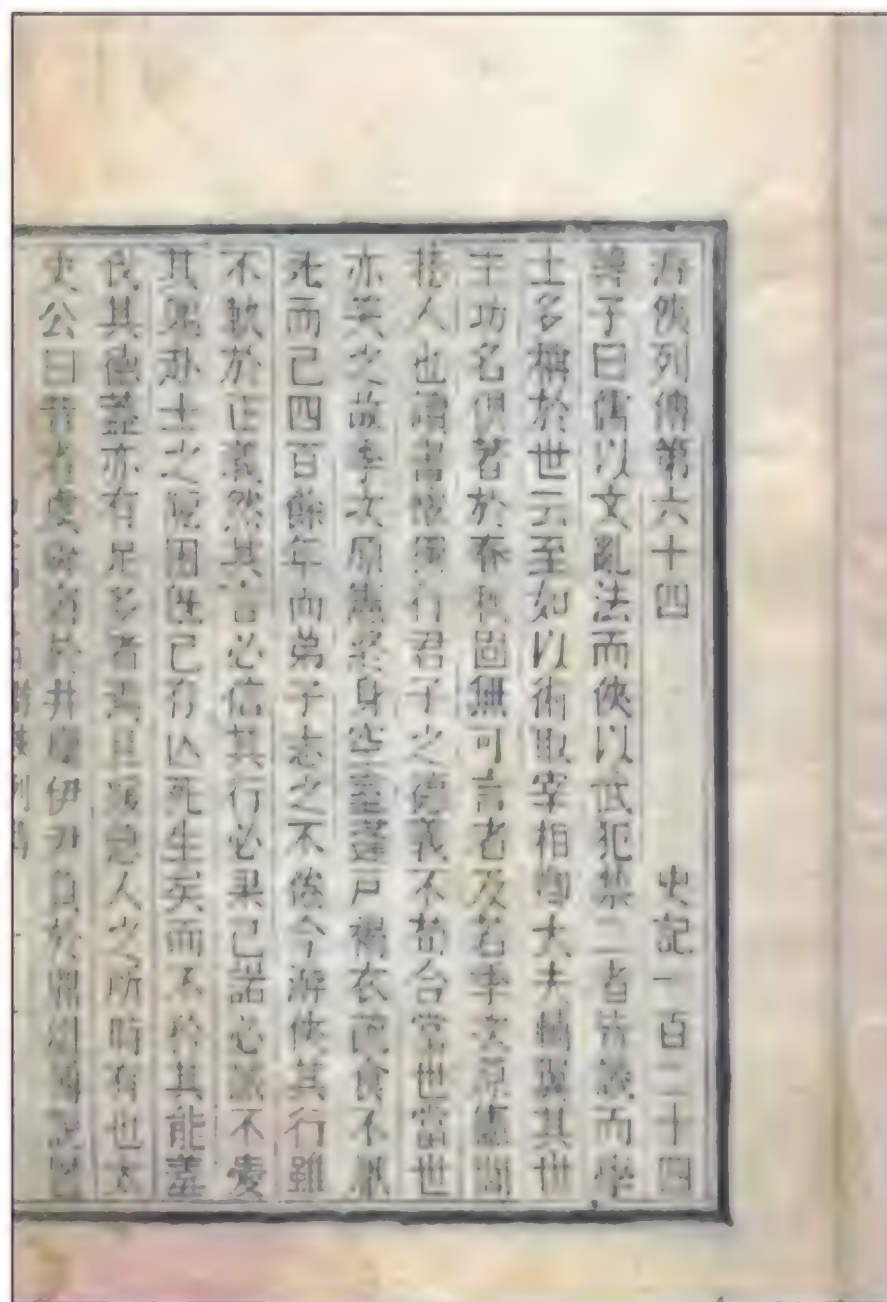 游俠列傳第六十四 史記一百二十四
韓子曰儒以文亂法而俠以武犯禁二者皆譏而學
士多稱於世云至如以術取宰相卿大夫輔翼其世
主功名俱著於春秋固無可言者及若季次原憲閭
巷人也讀書懷獨行君子之德義不苟合當世當世
亦笑之故季次原憲終身空室蓬戶褐衣疏食不厭
死而已四百餘年而弟子志之不倦今游俠其行雖
不軌於正義然其言必信其行必果已諾必誠不愛
其軀赴士之阸困既已存亡死生矣而不矜其能羞
伐其德蓋亦有足多者焉且緩急人之所時有也太
史公曰昔者虞舜窘於井廩伊尹負於鼎俎傅說